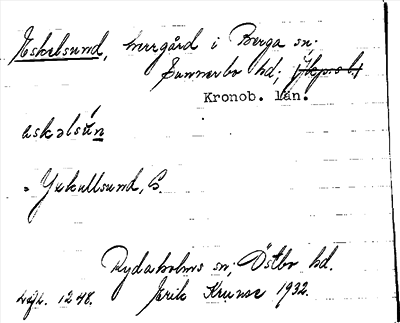 Eskelsund, herrgård i Berga sn;
Sunnerbo hd; (Jkps l.)
Kronob. län.
askəlsún
= Yxkullsund, G.
Rydaholms sn; Östbo hd.
1248. Kruuse 1932.